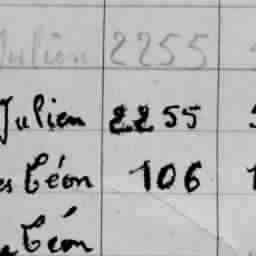 Julien 2255
Julien 2255
es Léon 106
Léon